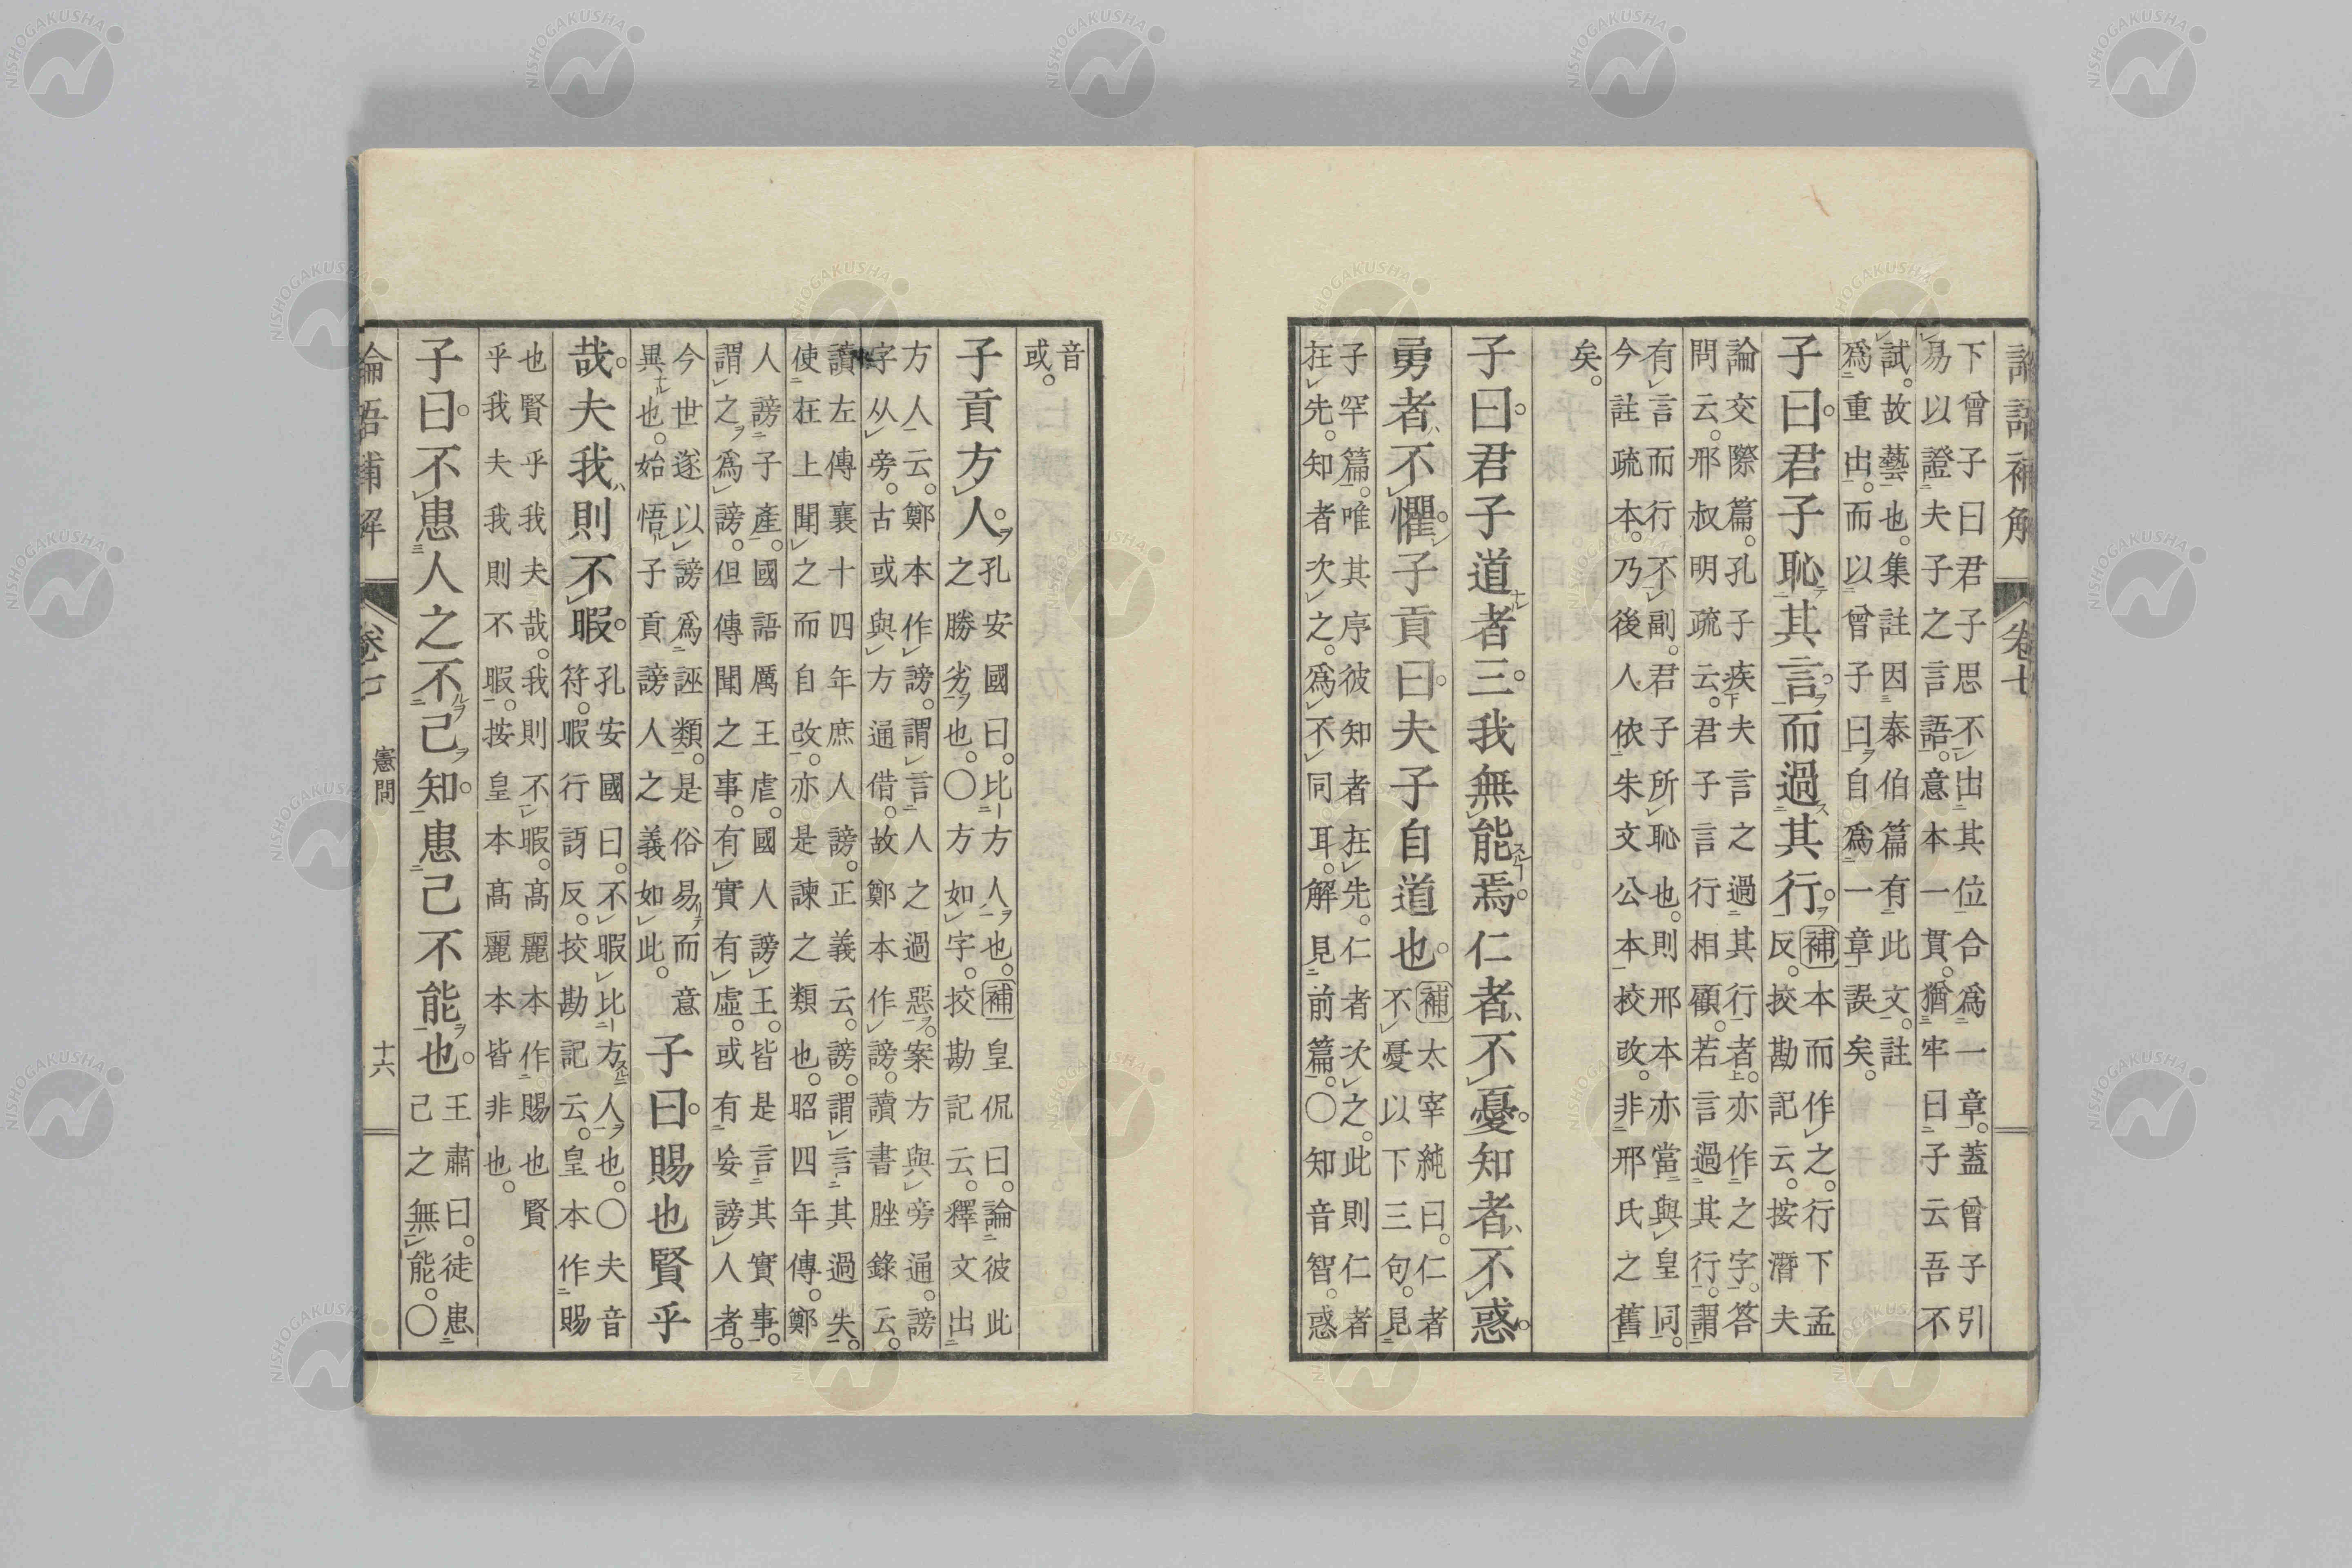 論語補解 卷七
下曾子曰君子思不出其位合爲一章。蓋曾子引
易以證夫子之言語。意本一貫。猶牢曰子云吾不
試。故藝也。集註因泰伯篇有此文。註
爲重出。而以曾子曰自爲一章誤矣。
子曰。君子恥其言。而過其行。
補本而作之。行下孟
反。挍勘記云。按潛夫
論交際篇。孔子疾夫言之過其行者。亦作之字。答
問云。邢叔明疏云。君子言行相顧。若言過其行。謂
有言而行不副。君子所恥也。則邢本亦當與皇同。
今註疏本。乃後人依朱文公本挍改。非邢氏之舊
矣。
子曰。君子道者三。我無能焉。仁者不憂。知者不惑。
勇者不懼。子貢曰。夫子自道也。
補太宰純曰。仁者
不憂以下三句。見
子罕篇。唯其序彼知者在先。仁者次之。此則仁者
在先。知者次之。爲不同耳。解見前篇。○知音智。惑
音
或。
子貢方人。
孔安國曰。比方人也。補皇侃曰。論彼此
之勝劣也。○方如字。挍勘記云。釋文出
方人云。鄭本作謗。謂言人之過惡。案方與旁通。謗
字从旁。古或與方通借。故鄭本作謗。讀書脞錄云。
讀左傳襄十四年庶人謗。正義云。謗。謂言其過失。
使在上聞之而自改。亦是諫之類也。昭四年傳。鄭
人謗子產。國語厲王虐。國人謗王。皆是言其實事。
謂之爲謗。但傳聞之事。有實有虛。或有妄謗人者。
今世遂以謗爲誣類。是俗易而意
異也。始悟子貢謗人之義如此。
子曰。賜也賢乎
哉。夫我則不暇。
孔安國曰。不暇比方人也。○夫音
符。暇行訝反。挍勘記云。皇本作賜
也賢乎我夫哉。我則不暇。高麗本作賜也賢
乎我夫我則不暇。按皇本高麗本皆非也。
子曰。不患人之不己知。患己不能也。
王肅曰。徒患
己之無能。○
論語補解 卷七 憲問 十六